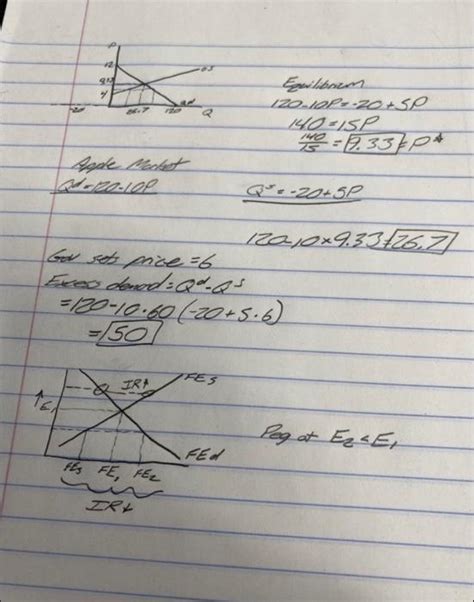 P
12
9.33
4
QS
Qd
-20
26.7
120
Q
Equilibrium
120-10P=-20+5P
140=15P
140/15 = 9.33 = P*
Apple Market
Qd=120-10P
QS=-20+5P
120-10×9.33=26.7
Gov sets price=6
Excess demand=Qd-QS
=120-10·60(-20+5·6)
=50
IR↑
FES
↑E1
FEd
FE3 FE1 FE2
IR↓
Peg at E2<E1